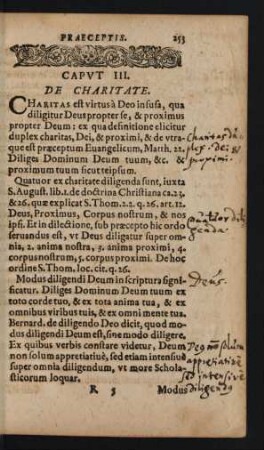 PRAECEPTIS. 253
CAPVT III.
DE CHARITATE.
CHARITAS est virtus à Deo infusa, qua
diligitur Deus propter se, & proximus
propter Deum: ex qua definitione elicitur
duplex charitas, Dei, & proximi, & de vtra-
que est præceptum Euangelicum, Matth. 22.
Diliges Dominum Deum tuum, &c. &
proximum tuum sicut teipsum.
Quatuor ex charitate diligenda sunt, iuxta
S. August. lib. 1. de doctrina Christiana ca. 23.
& 26. quæ explicat S. Thom. 2.2. q. 26. art. 12.
Deus, Proximus, Corpus nostrum, & nos
ipsi. Et in dilectione, sub præcepto hic ordo
seruandus est, vt Deus diligatur super om-
nia, 2. anima nostra, 3. anima proximi, 4.
corpus nostrum, 5. corpus proximi. De hoc
ordine S. Thom. loc. cit. q. 26.
Modus diligendi Deum in scriptura signi-
ficatur. Diliges Dominum Deum tuum ex
toto corde tuo, & ex tota anima tua, & ex
omnibus viribus tuis, & ex omni mente tua.
Bernard. de diligendo Deo dicit, quod mo-
dus diligendi Deum est, sine modo diligere.
Ex quibus verbis constare videtur, Deum
non solum appretiatiuè, sed etiam intensiuè
super omnia diligendum, vt more Schola-
sticorum loquar.
R 5 Modus
Charitas du-
plex. dei &
proximi.
Deus.
non solum
appretiatiuè
sed intensiuè
diligendus